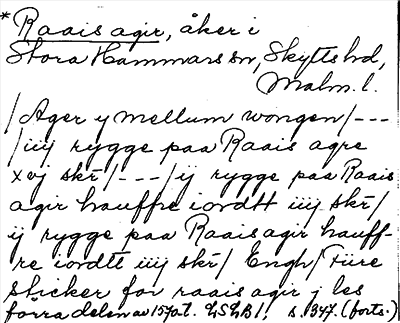 * Raais agir, åker i
Stora Hammars sn, Skytts hd,
Malm. l.
/Ager y mellum wongen/---
/iiij rygge paa Raais agre
xvj skr̄/---/ij rygge paa Raais
agir hauffre iordtt iiij skr̄/
ij rygge paa Raais agir hauff-
re iordtt iiij skr̄/ Engh/ Fiire
sticker for raais agir j les
förra delen av 1570t. LSHB1. s. 347. (forts.)